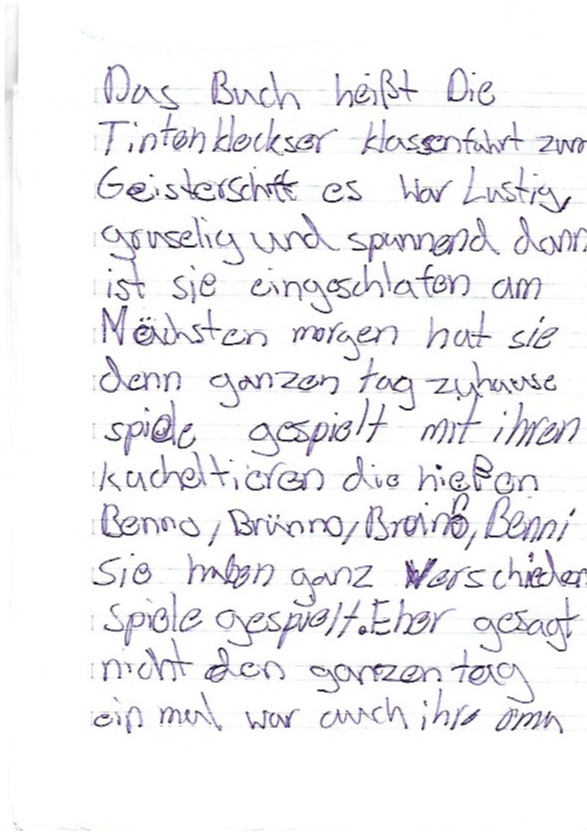 Das Buch heißt Die
Tintenkleckser klassenfahrt zum
Geisterschiff es War Lustig,
gruselig und spannend dann
ist sie eingeschlafen am
Nächsten morgen hat sie
denn ganzen tag zuhause
spiele gespielt mit ihren
kucheltieren die hießen
Benno, Brünno, Benni
Sie haben ganz Verschieden
Spiele gespielt. Eher gesagt
nicht den ganzen tag
ein mal war auch ihre oma